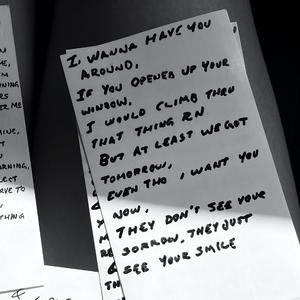 I WANNA HAVE YOU
AROUND,
IF YOU OPENED UP YOUR
WINDOW,
I WOULD CLIMB THRU
THAT THING RN
BUT AT LEAST WE GOT
TOMORROW,
EVEN THO, I WANT YOU
NOW,
THEY DON'T SEE YOUR
SORROW, THEY JUST
SEE YOUR SMILE